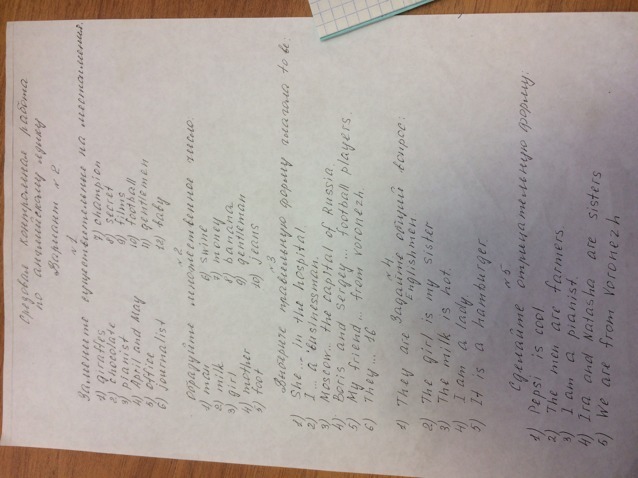 Срезовая контрольная работа
по английскому языку
Вариант №2.
№1
Замените существительные на местоимения.
1) giraffes 7) champion
2) chocolate 8) secret
3) pianist 9) films
4) April and May 10) football
5) office 11) gentlemen
6) journalist 12) baby
№2
Образуйте множественное число.
1) man 6) swine
2) milk 7) money
3) girl 8) banana
4) mother 9) gentleman
5) foot 10) jeans
№3
Выберите правильную форму глагола to be:
1) She... in the hospital
2) I ... a businessman.
3) Moscow... the capital of Russia.
4) Boris and Sergey... football players.
5) My friend ... from Voronezh
6) They ... 16
№4
Задайте общий вопрос:
1) They are Englishmen
2) The girl is my sister
3) The milk is hot.
4) I am a lady
5) It is a hamburger
№5
Сделайте отрицательную форму:
1) Pepsi is cool
2) The men are farmers
3) I am a pianist.
4) Ira and Natasha are sisters
5) We are from Voronezh